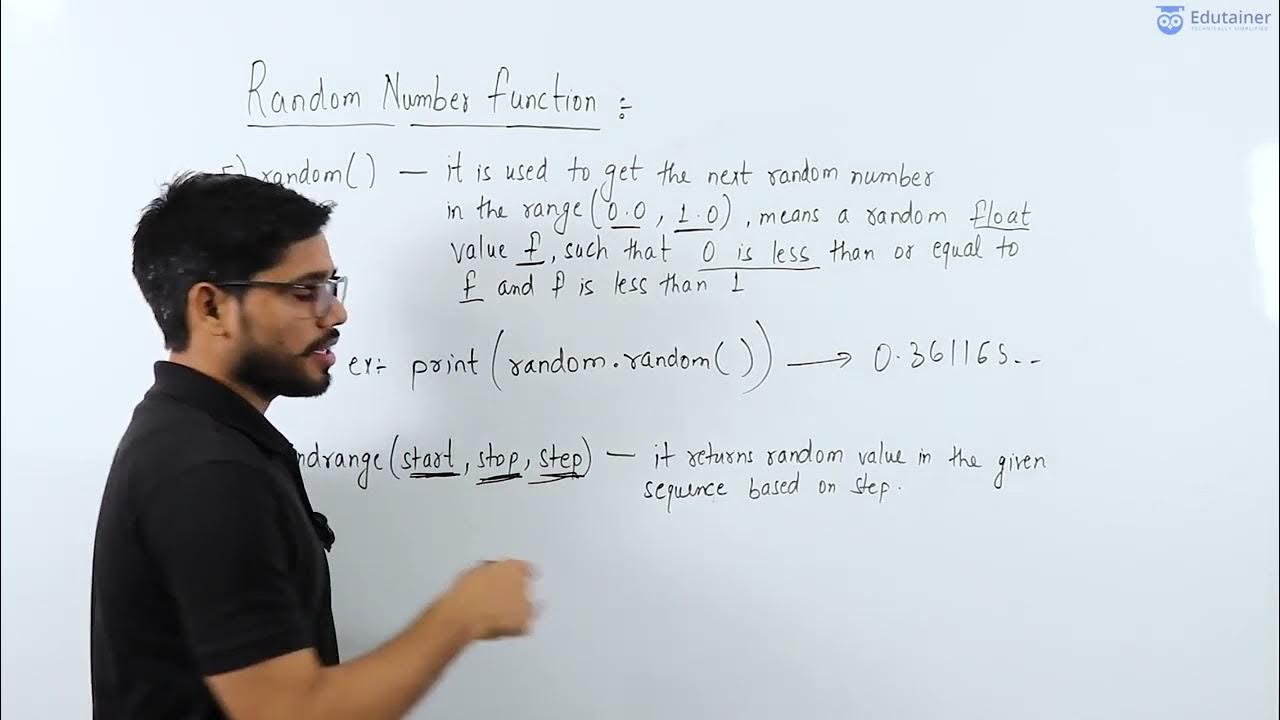 Edutainer
TECHNICALLY SIMPLIFIED
Random Number function :-
5) random() — it is used to get the next random number
in the range (0.0 , 1.0) , means a random float
value f , such that 0 is less than or equal to
f and f is less than 1
ex:- print (random.random()) → 0.361165--
ndrange (start , stop , step) — it returns random value in the given
sequence based on step.